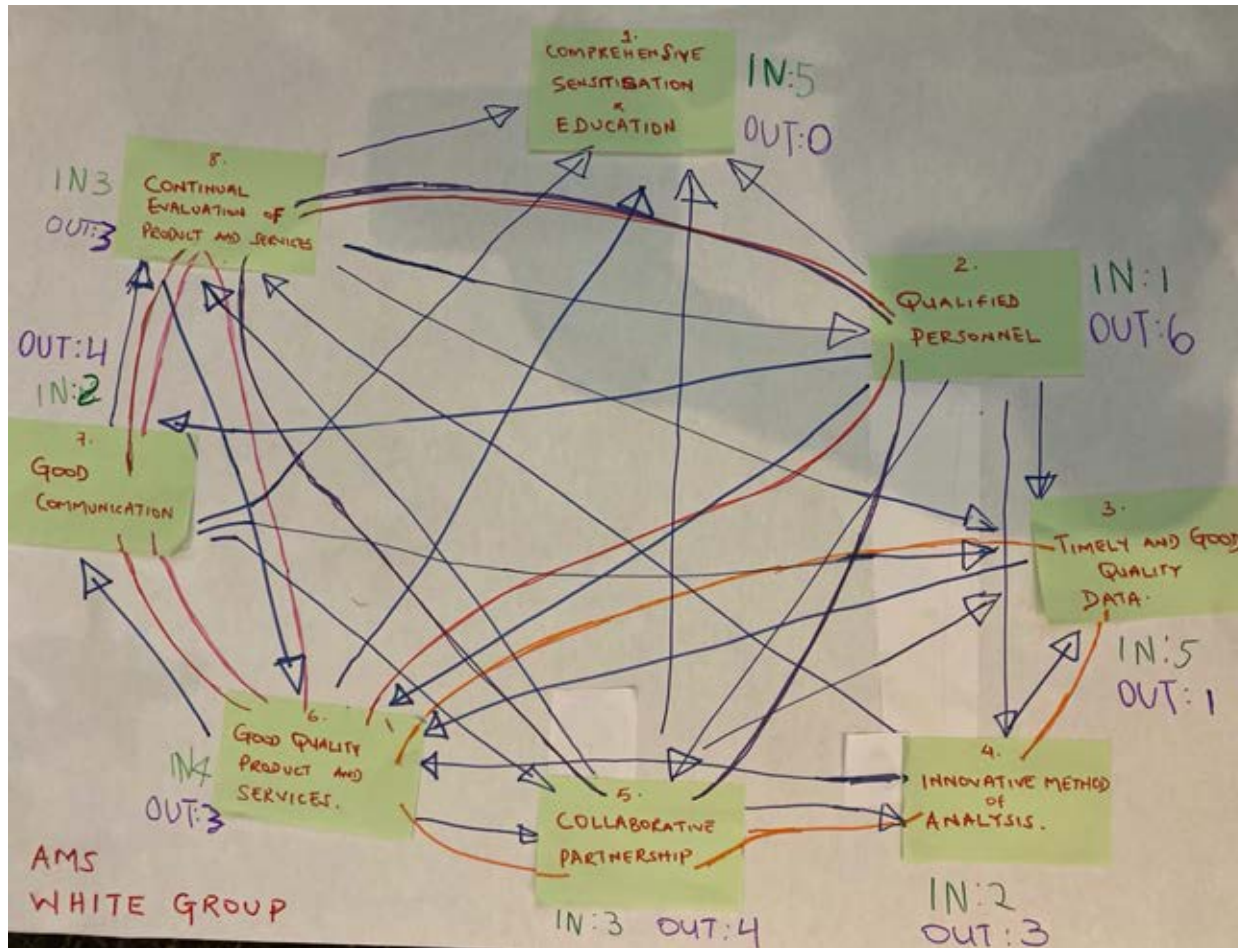 1.
COMPREHENSIVE
SENSITISATION
&
EDUCATION
IN:5
OUT:0
8.
CONTINUAL
EVALUATION OF
PRODUCT AND SERVICES
IN3
OUT:3
2.
QUALIFIED
PERSONNEL
IN:1
OUT:6
OUT:4
IN:2
7.
GOOD
COMMUNICATION
3.
TIMELY AND GOOD
QUALITY
DATA.
IN:5
OUT:1
6.
GOOD QUALITY
PRODUCT AND
SERVICES.
IN4
OUT:3
5.
COLLABORATIVE
PARTNERSHIP
IN:3 OUT:4
4.
INNOVATIVE METHOD
OF
ANALYSIS.
IN:2
OUT:3
AMS
WHITE GROUP